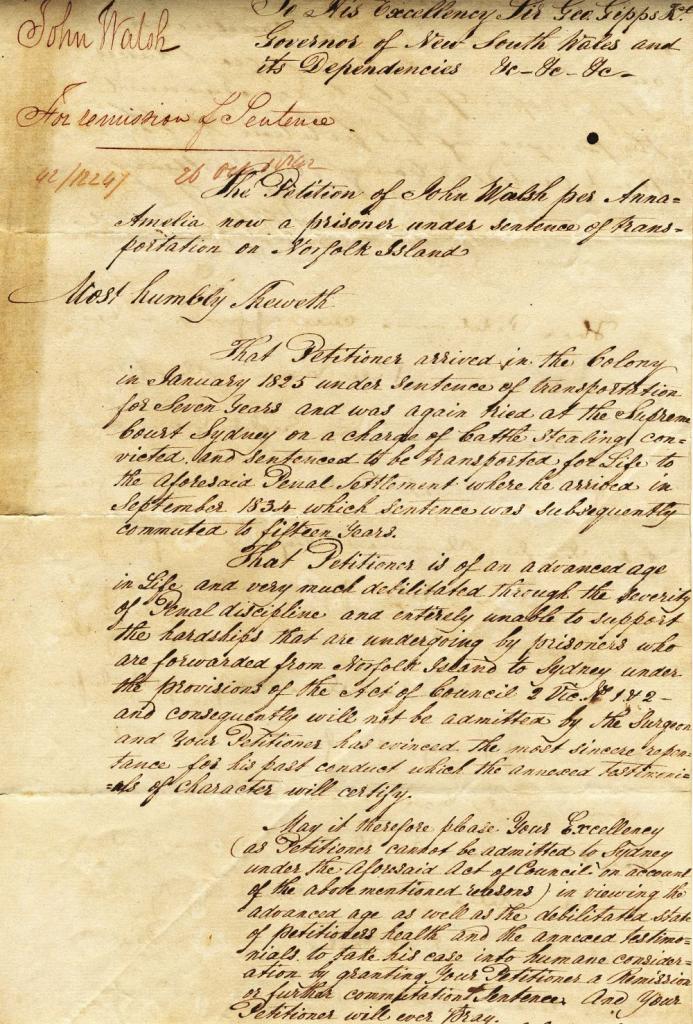 John Walsh
To His Excellency Sir Geo. Gipps Kt.
Governor of New South Wales and
its Dependencies &c - &c - &c -
For remission of Sentence
42/12247 26 Oct 1842
The Petition of John Walsh per Anna=
Amelia now a prisoner under sentence of trans=
portation on Norfolk Island
Most humbly Sheweth
That Petitioner arrived in the Colony
in January 1825 under sentence of transportation
for Seven Years and was again tried at the Supreme
Court Sydney on a charge of Cattle Stealing, con=
victed, and sentenced to be transported for Life to
the aforesaid Penal Settlement where he arrived in
September 1834 which sentence was subsequently
commuted to fifteen Years.
That Petitioner is of an advanced age
in Life and very much debilitated through the severity
of Penal discipline and entirely unable to support
the hardships that are undergoing by prisoners who
are forwarded from Norfolk Island to Sydney under
the provisions of the Act of Council 2 Vic. No 1 & 2 -
and consequently will not be admitted by the Surgeon
and Your Petitioner has evinced the most sincere repen=
tance for his past conduct which the annexed testimoni=
=als of character will certify.
May it therefore please Your Excellency
(as Petitioner cannot be admitted to Sydney
under the Aforesaid Act of Council on account
of the above mentioned reasons) in viewing the
advanced age as well as the debilitated state
of petitioners health and the annexed testimo=
nials to take his case into humane consider=
ation by granting Your Petitioner a Remission
or further commutation of Sentence. And Your
Petitioner will ever Pray.